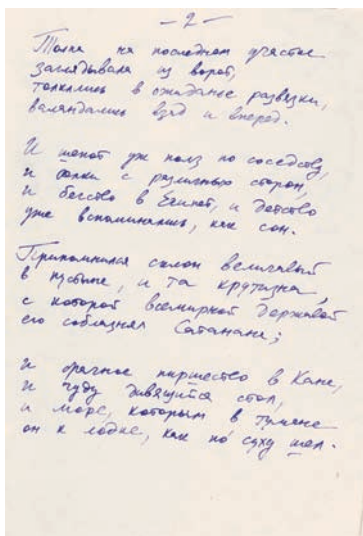 — 2 —
Толпа на последнем участке
заглядывала из ворот,
толклись в ожиданье развязки,
валандались взад и вперед.
И шепот уж полз по соседству,
и толки с различных сторон,
и бегство в Египет, и детство
уже вспоминались, как сон.
Припомнился склон величавый
в пустыне, и та крутизна,
с которой всемирной державой
его соблазнял Сатана;
И брачное пиршество в Кане,
и чуду дивящийся стол,
и море, которым в тумане
он к лодке, как по суху шел.